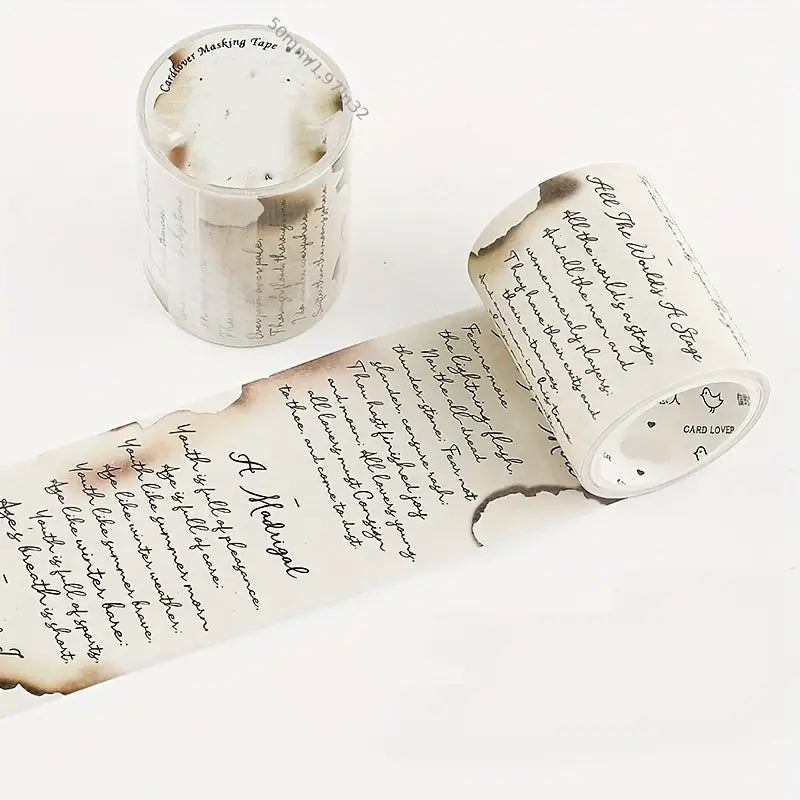 Cardlover Masking Tape
50mm/1.97in32
Over park over pale,
Thorough flood, thorough
I do wander everywhere,
Swifter than the moon's sphere
All The World's A Stage
All the world's a stage,
And all the men and
women merely players;
They have their exits and
their entrances,
CARD LOVER
Fear no more
the lightning-flash,
Nor the all-dread
thunder-stone; Fear not
slander, censure rash;
Thou hast finished joy
and moan: All lovers young,
all lovers must Consign
to thee, and come to dust.
A Madrigal
Youth is full of pleasance,
Age is full of care;
Youth like summer morn,
Age like winter weather;
Youth like summer brave,
Age like winter bare:
Youth is full of sports,
Age's breath is short,